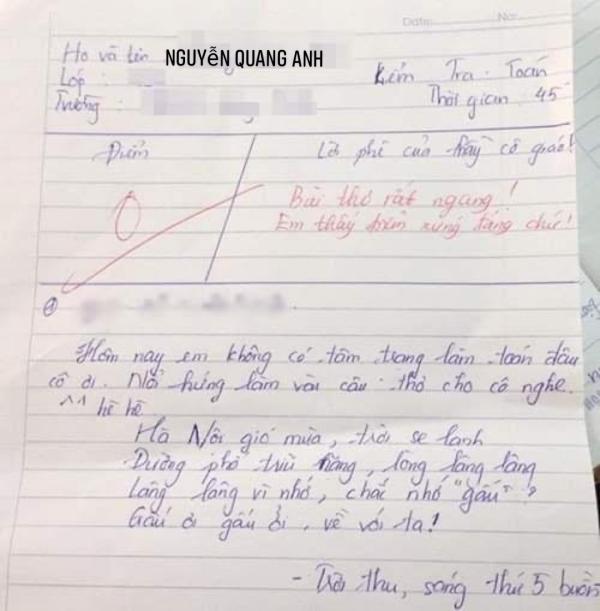 Date: No:
Họ và tên NGUYỄN QUANG ANH
Lớp : Kiểm Tra . Toán
Trường : Thời gian : 45'
Điểm Lời phê của thầy cô giáo!
0 Bài thơ rất ngang!
Em thấy điểm xứng đáng chứ!
①
Hôm nay em không có tâm trạng làm toán đâu
cô ơi. Nổi hứng làm vài câu thơ cho cô nghe.
^^ hề hề
Hà Nội gió mùa, trời se lạnh
Đường phố trĩu nặng, lòng lâng lâng
Lâng lâng vì nhớ, chắc nhớ "gấu"?
Gấu ơi gấu ổi, về với ta!
- Trời thu, sáng thứ 5 buồn